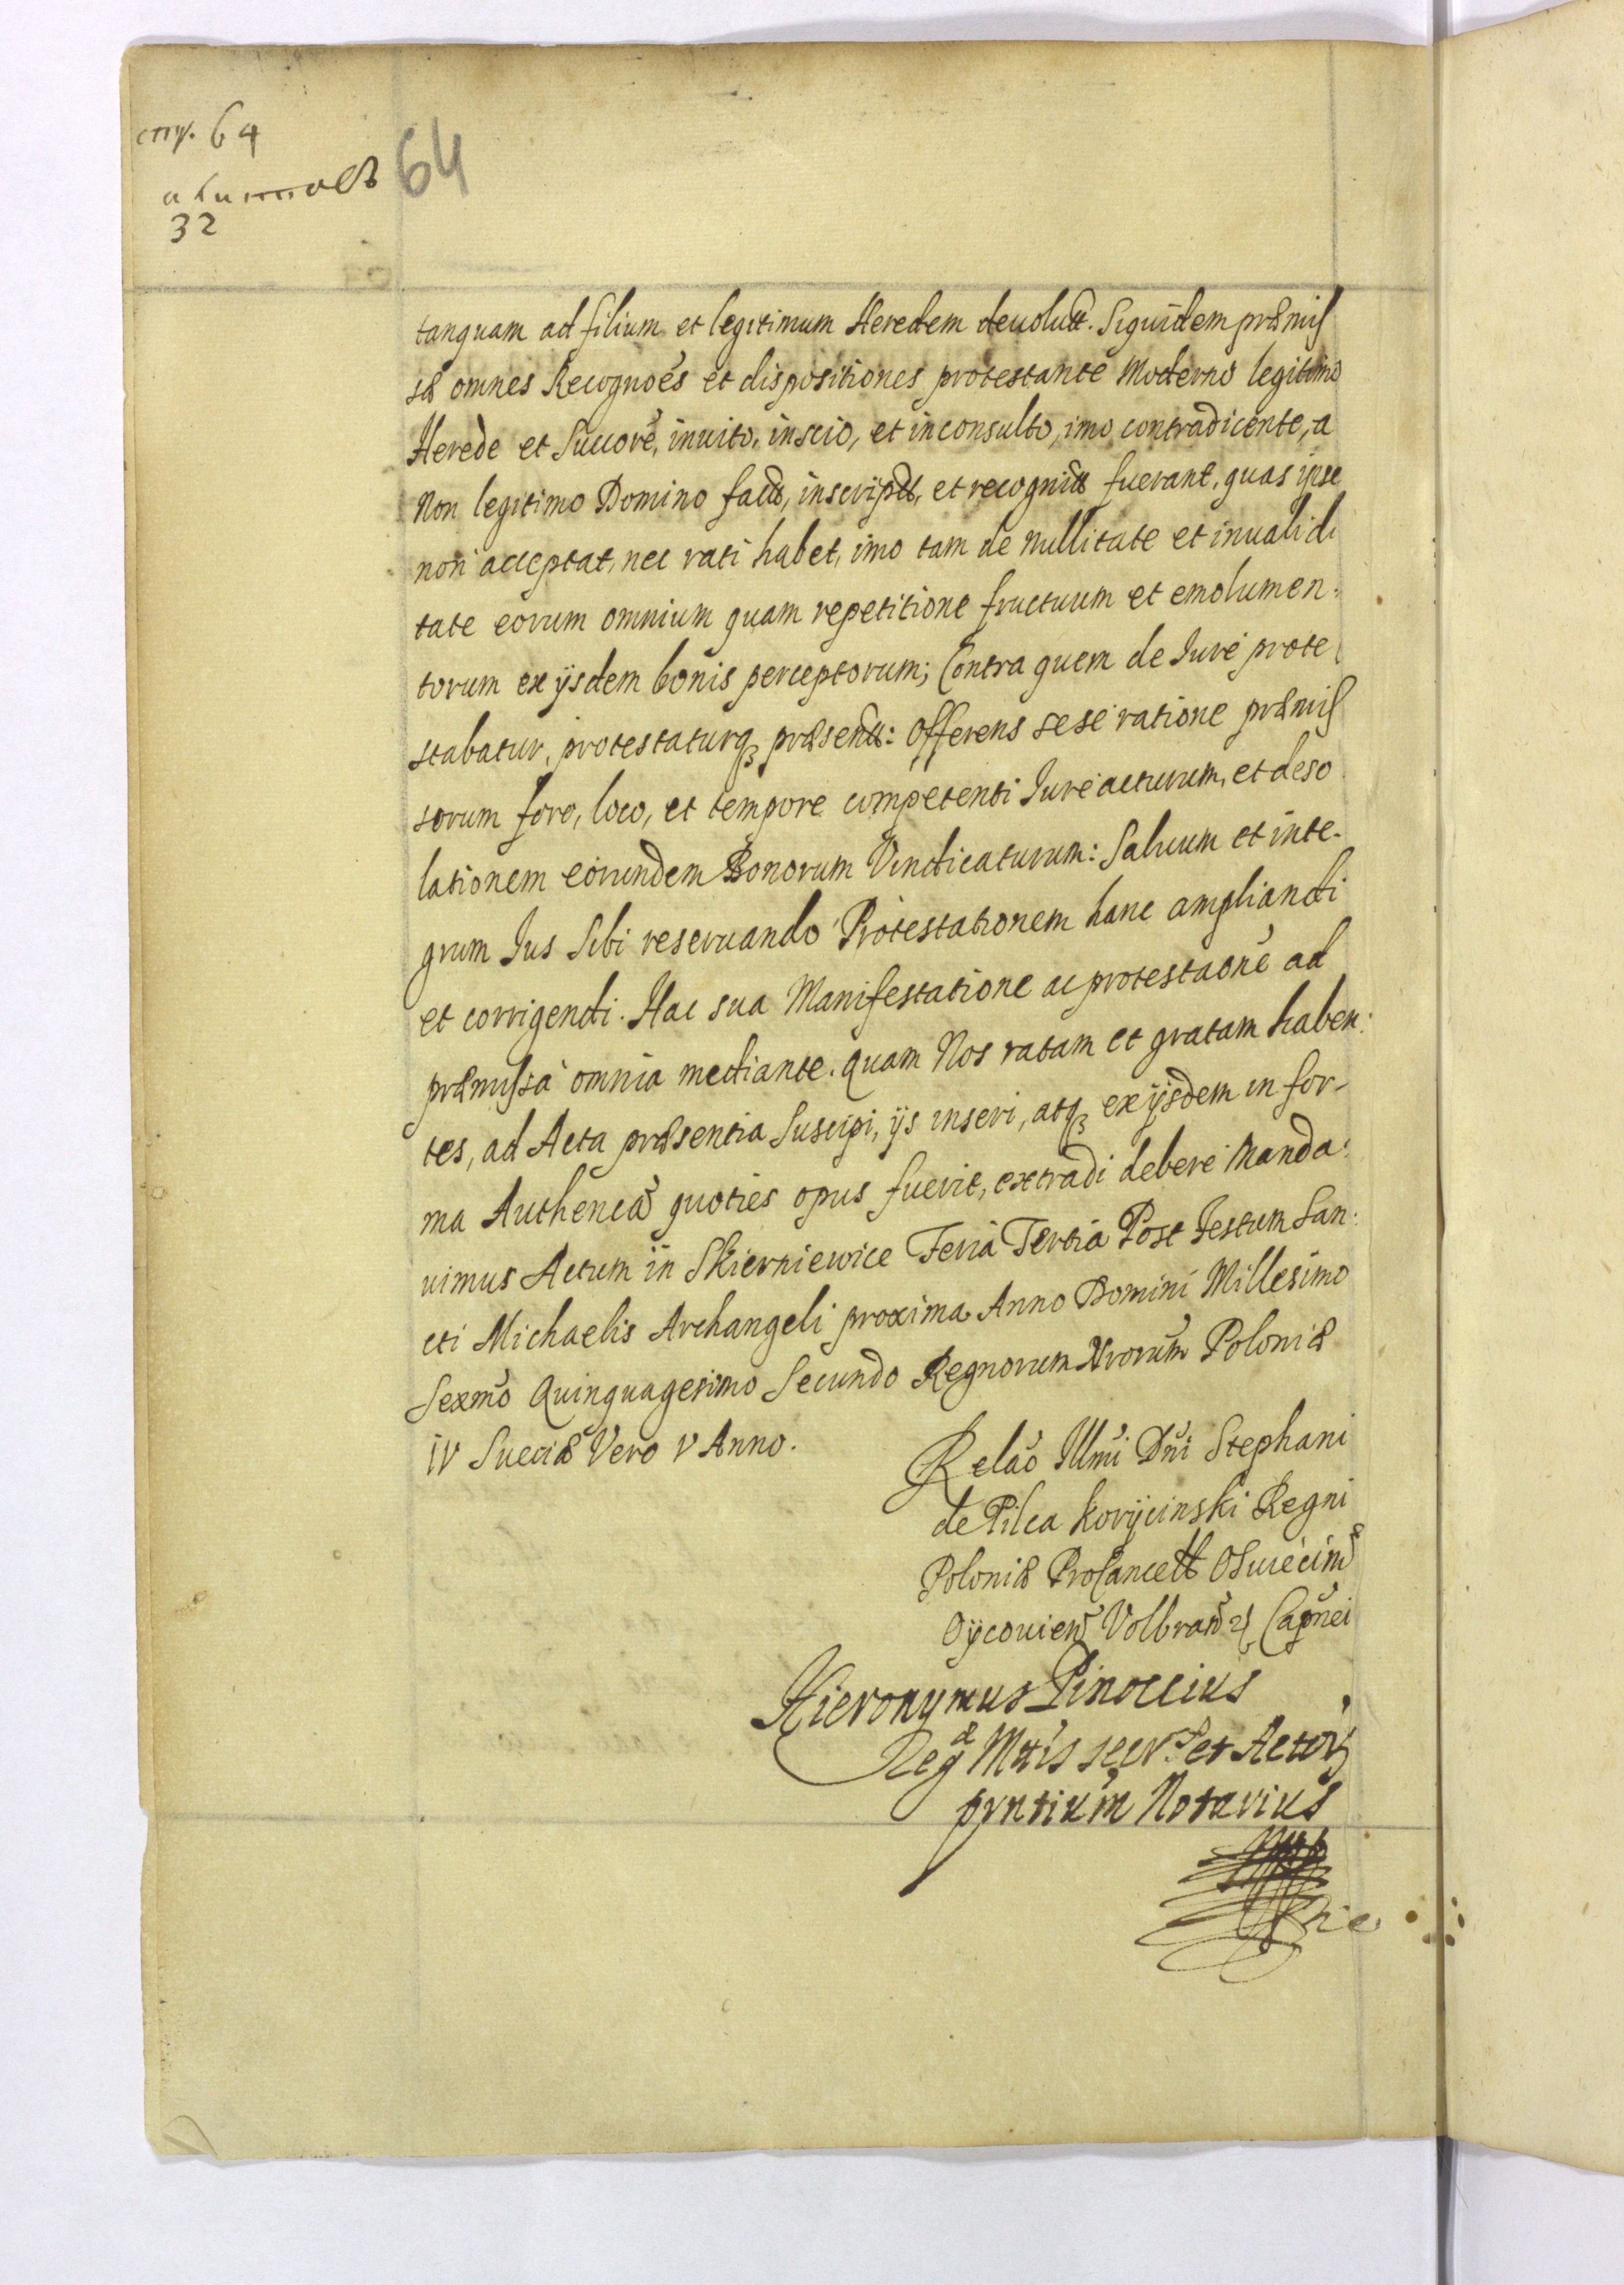 стр. 64
64
32
tanquam ad filium et legitimum Heredem deuolutæ. Siquidem præmis
sæ omnes Recognoẽs et dispositiones protestante Moderno legitimo
Herede et Succorẽ, inuito, inscio, et inconsulto, imo contradicente, a
Non legitimo Domino factæ, inscriptæ, et recognitæ fuerant, quas ipse
non acceptat, nec rati habet, imo tam de nullitate et inualidi
tate eorum omnium quam repetitione fructuum et emolumen-
torum ex ijsdem bonis perceptorum; Contra quem de Iure prote
stabatur, protestaturq₃ præsentt: Offerens sese ratione præmis
sorum foro, loco, et tempore competenti Iure acturum, et deso
lationem eorundem Bonorum Vindicaturum: Saluum et inte-
grum Ius Sibi reseruando Protestationem hanc ampliandi
et corrigendi. Hac sua Manifestatione ac protestaonẽ ad
præmissa omnia mediante. Quam Nos ratam et gratam haben:
tes, ad Acta præsentia Suscipi, ijs inseri, atq₃ ex ijsdem in for-
ma Authencã quoties opus fuerit, extradi debere Manda:
uimus Actum in Skierniewice Feria Tertia Post Festum San:
cti Michaelis Archangeli proxima Anno Domini Millesimo
Sexmõ Quinquagesimo Secundo Regnorum Nrorum̃ Poloniæ
IV Sueciæ Vero V Anno.
Relaõ Illmĩ Dnĩ Stephani
de Pilca Korijcinski Regni
Poloniæ ProCancell Osuiecim̃
Oijcouien̄ Volbram̃ Capnei
Hieronymus Pinoccius
Regæ Mttis secr. et Actor̃
prntium̃ Notarius